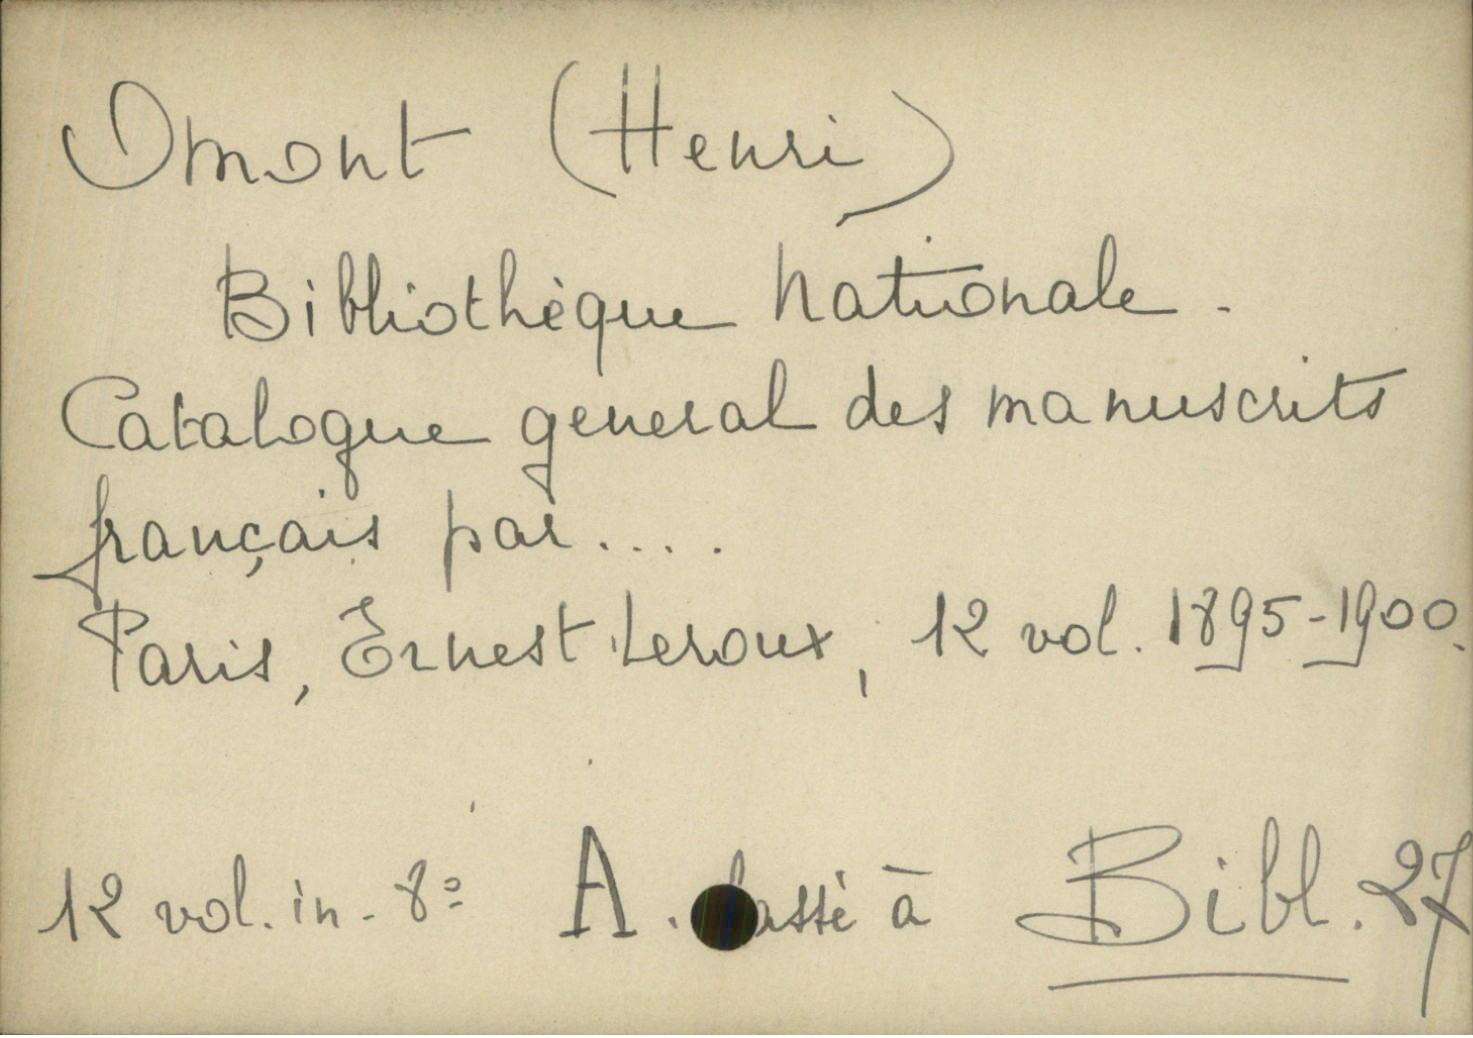 Omont (Henri)
Bibliothèque nationale.
Catalogue general des manuscrits
français par....
Paris, Ernest Leroux, 12 vol. 1895-1900.
12 vol. in-8° A. à Bibl. 27